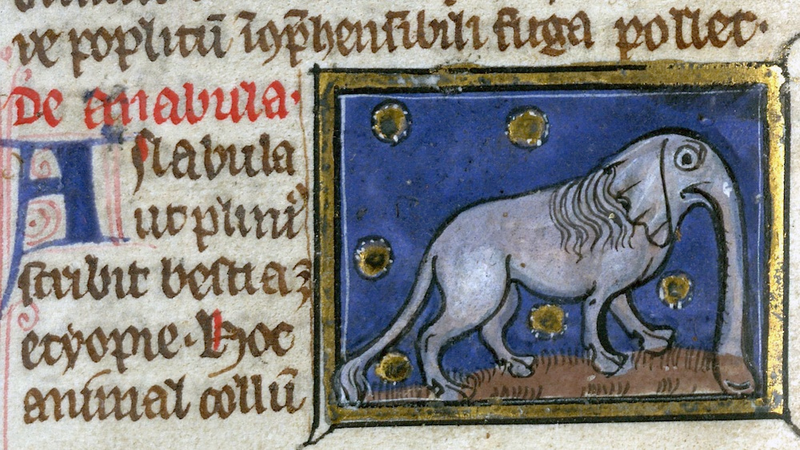 re poplitū īɔp̄hensibili fuga posset·
De anabula·
Anabula
ut pliniꝰ
scribit bestiaꝫ
etyopie· Hoc
animal collū